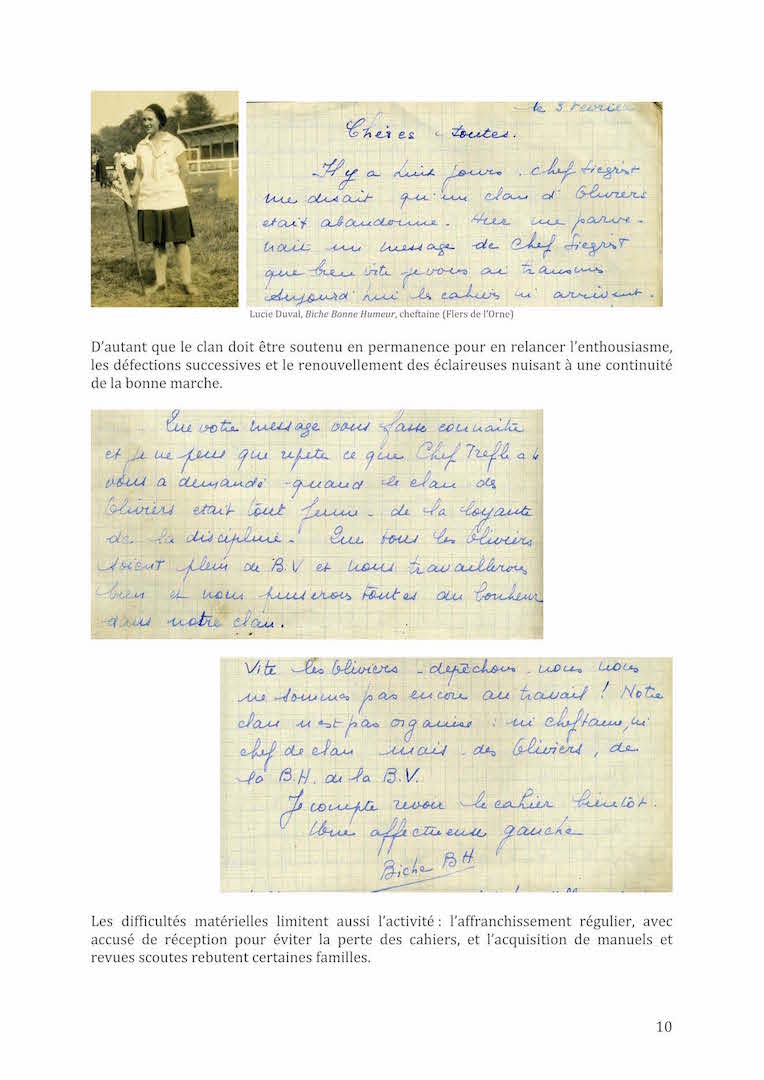 le 3 Fevrier
Chères toutes.
Il y a huit jours, chef Siegrist
me disait qu'un clan d'Oliviers
etait abandonné. Hier me parve-
nait un message de Chef Siegrist
que bien vite je vous ai transmis
Aujourd'hui les cahiers m'arrivent.
Lucie Duval, Biche Bonne Humeur, cheftaine (Flers de l'Orne)
D'autant que le clan doit être soutenu en permanence pour en relancer l'enthousiasme,
les défections successives et le renouvellement des éclaireuses nuisant à une continuité
de la bonne marche.
Que votre message vous fasse connaitre
et je ne peux que repeter ce que Chef Trefle a 4
vous a demandé quand le clan des
Oliviers etait tout jeune - de la loyauté
de la discipline. Que tous les Oliviers
soient plein de B.V et nous travaillerons
bien et nous puiserons toutes du bonheur
dans notre clan.
Vite les Oliviers - depêchons-nous nous
ne sommes pas encore au travail ! Notre
clan n'est pas organisé : ni cheftaine, ni
chef de clan mais des Oliviers, de
la B.H. de la B.V.
Je compte revoir le cahier bientôt.
Une affectueuse gauche
Biche BH
Les difficultés matérielles limitent aussi l'activité : l'affranchissement régulier, avec
accusé de réception pour éviter la perte des cahiers, et l'acquisition de manuels et
revues scoutes rebutent certaines familles.
10